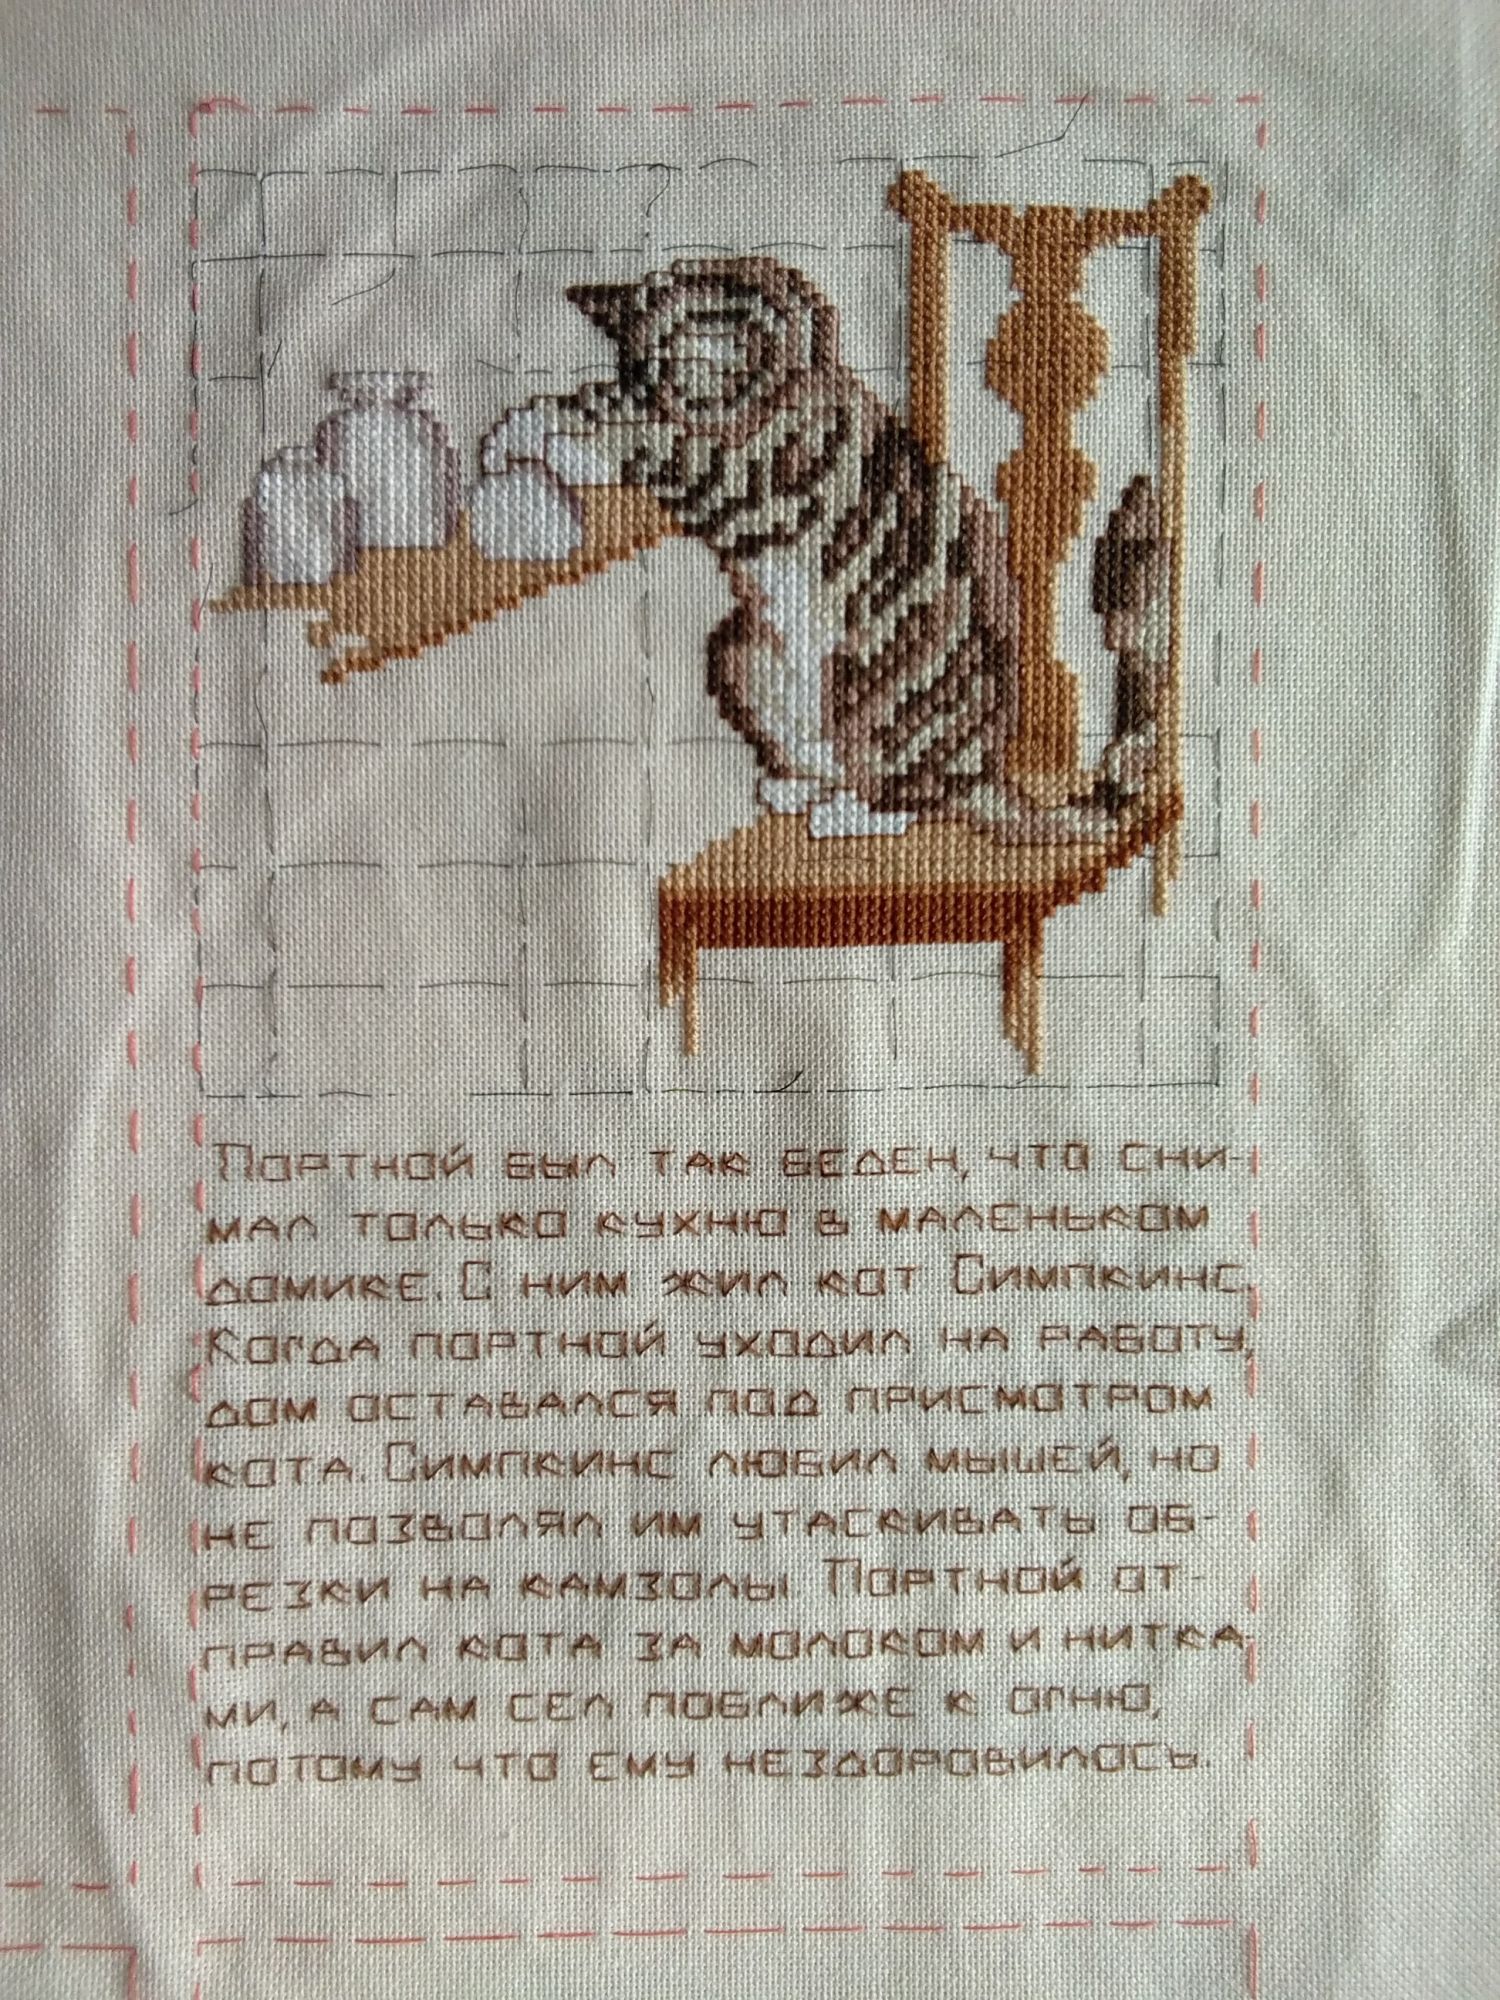 Портной был так беден, что сни-
мал только кухню в маленьком
домике. С ним жил кот Симпкинс.
Когда портной уходил на работу,
дом оставался под присмотром
кота. Симпкинс любил мышей, но
не позволял им утаскивать об-
резки на камзолы. Портной от-
правил кота за молоком и нитка-
ми, а сам сел поближе к огню,
потому что ему нездоровилось.